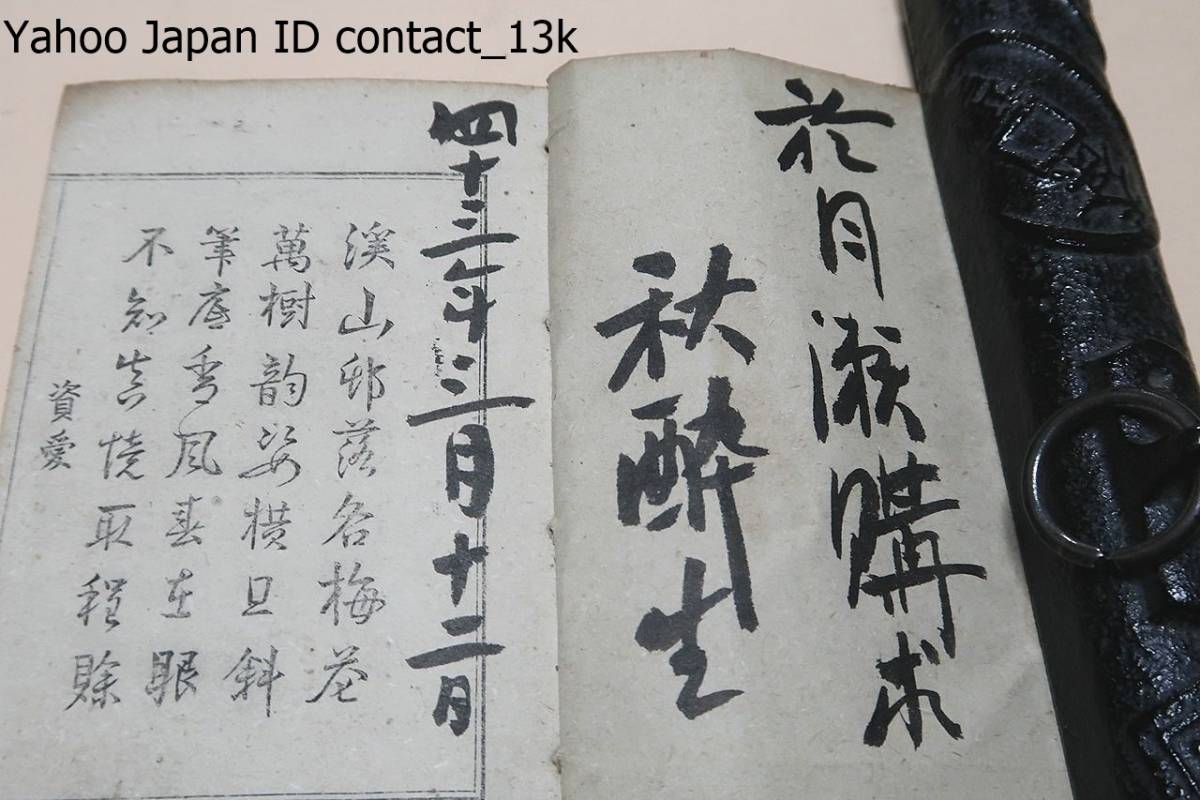 Yahoo Japan ID contact_13k
於月瀬購求
秋醉生
四十三年三月十二月
溪山邨落各梅花
萬樹韵姿横且斜
筆底香風春在眼
不知真境取程賒
資愛